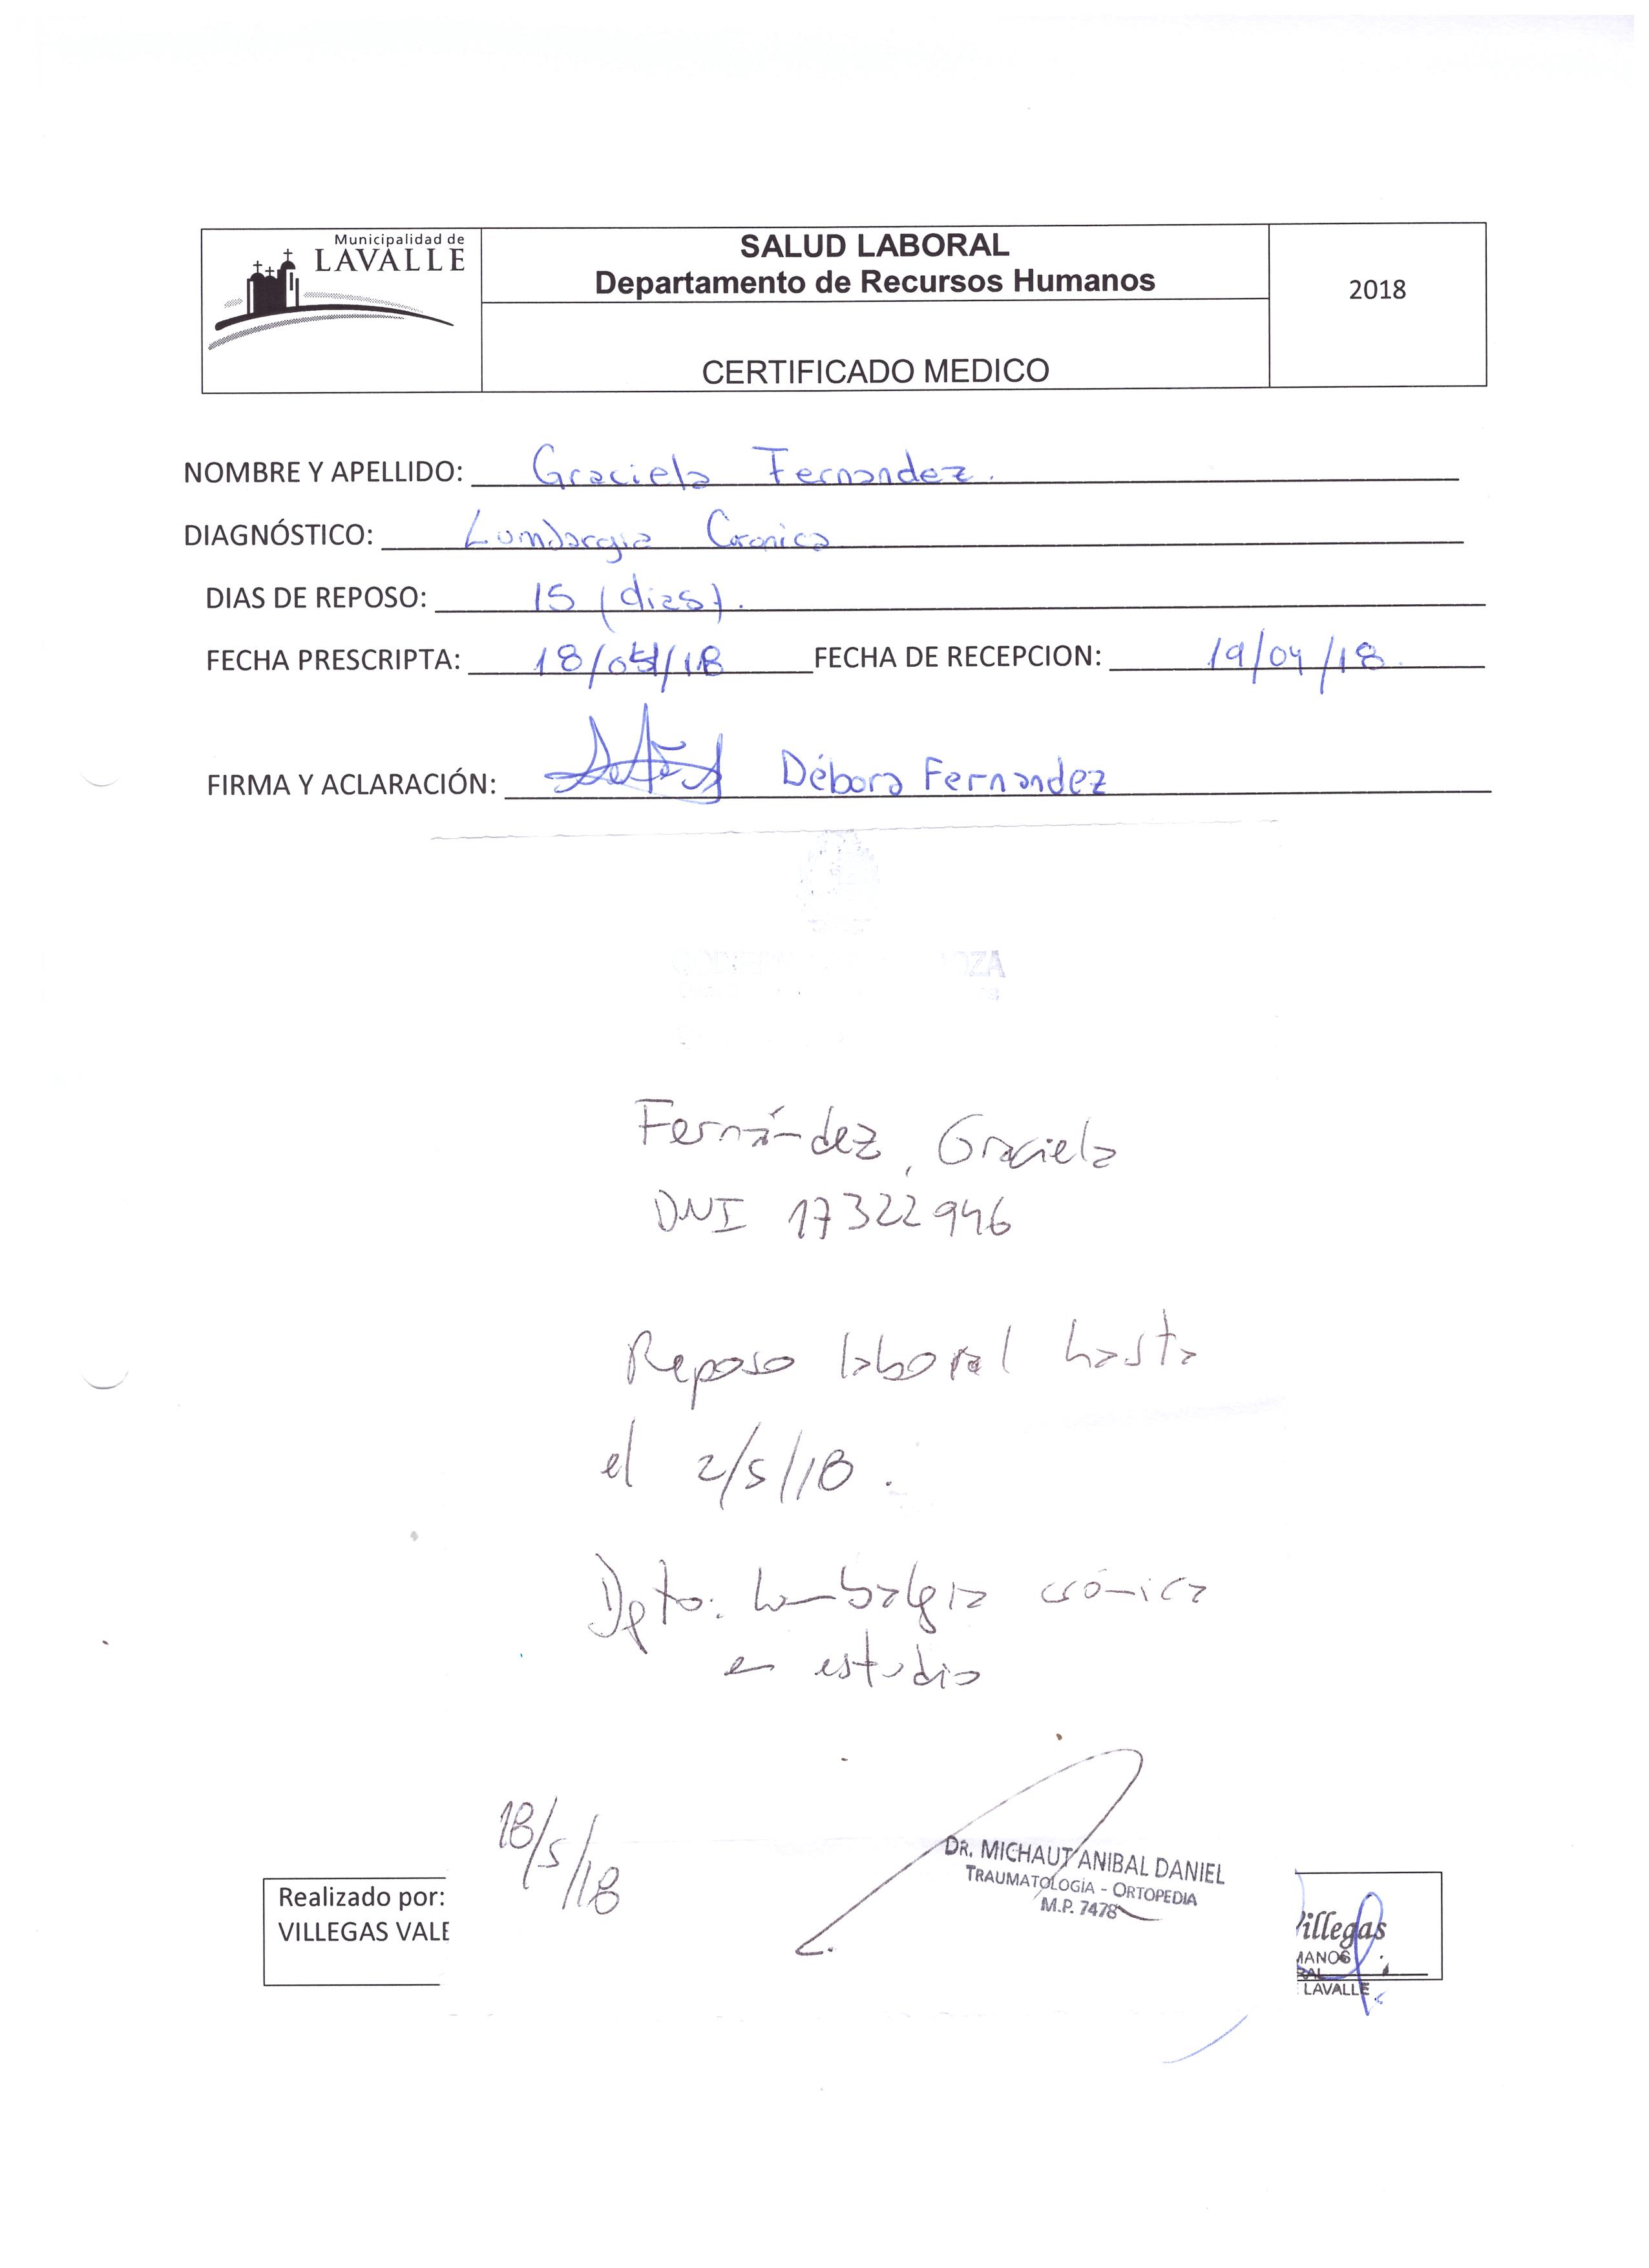 Municipalidad de
LAVALLE
SALUD LABORAL
Departamento de Recursos Humanos
2018
CERTIFICADO MEDICO
NOMBRE Y APELLIDO: Graciela Fernandez.
DIAGNÓSTICO: Lumbargia Cronica
DIAS DE REPOSO: 15 (dias).
FECHA PRESCRIPTA: 18/04/18 FECHA DE RECEPCION: 19/04/18.
FIRMA Y ACLARACIÓN: Débora Fernandez
OZA
Fernández, Graciela
DNI 17322946
Reposo laboral hasta
el 2/5/18.
Dgto: Lumbalgia crónica
en estudio
18/5/18
DR. MICHAUT ANIBAL DANIEL
TRAUMATOLOGÍA - ORTOPEDIA
M.P. 7478
Realizado por:
VILLEGAS VALE
illegas
MANOS
RAL
LAVALLE